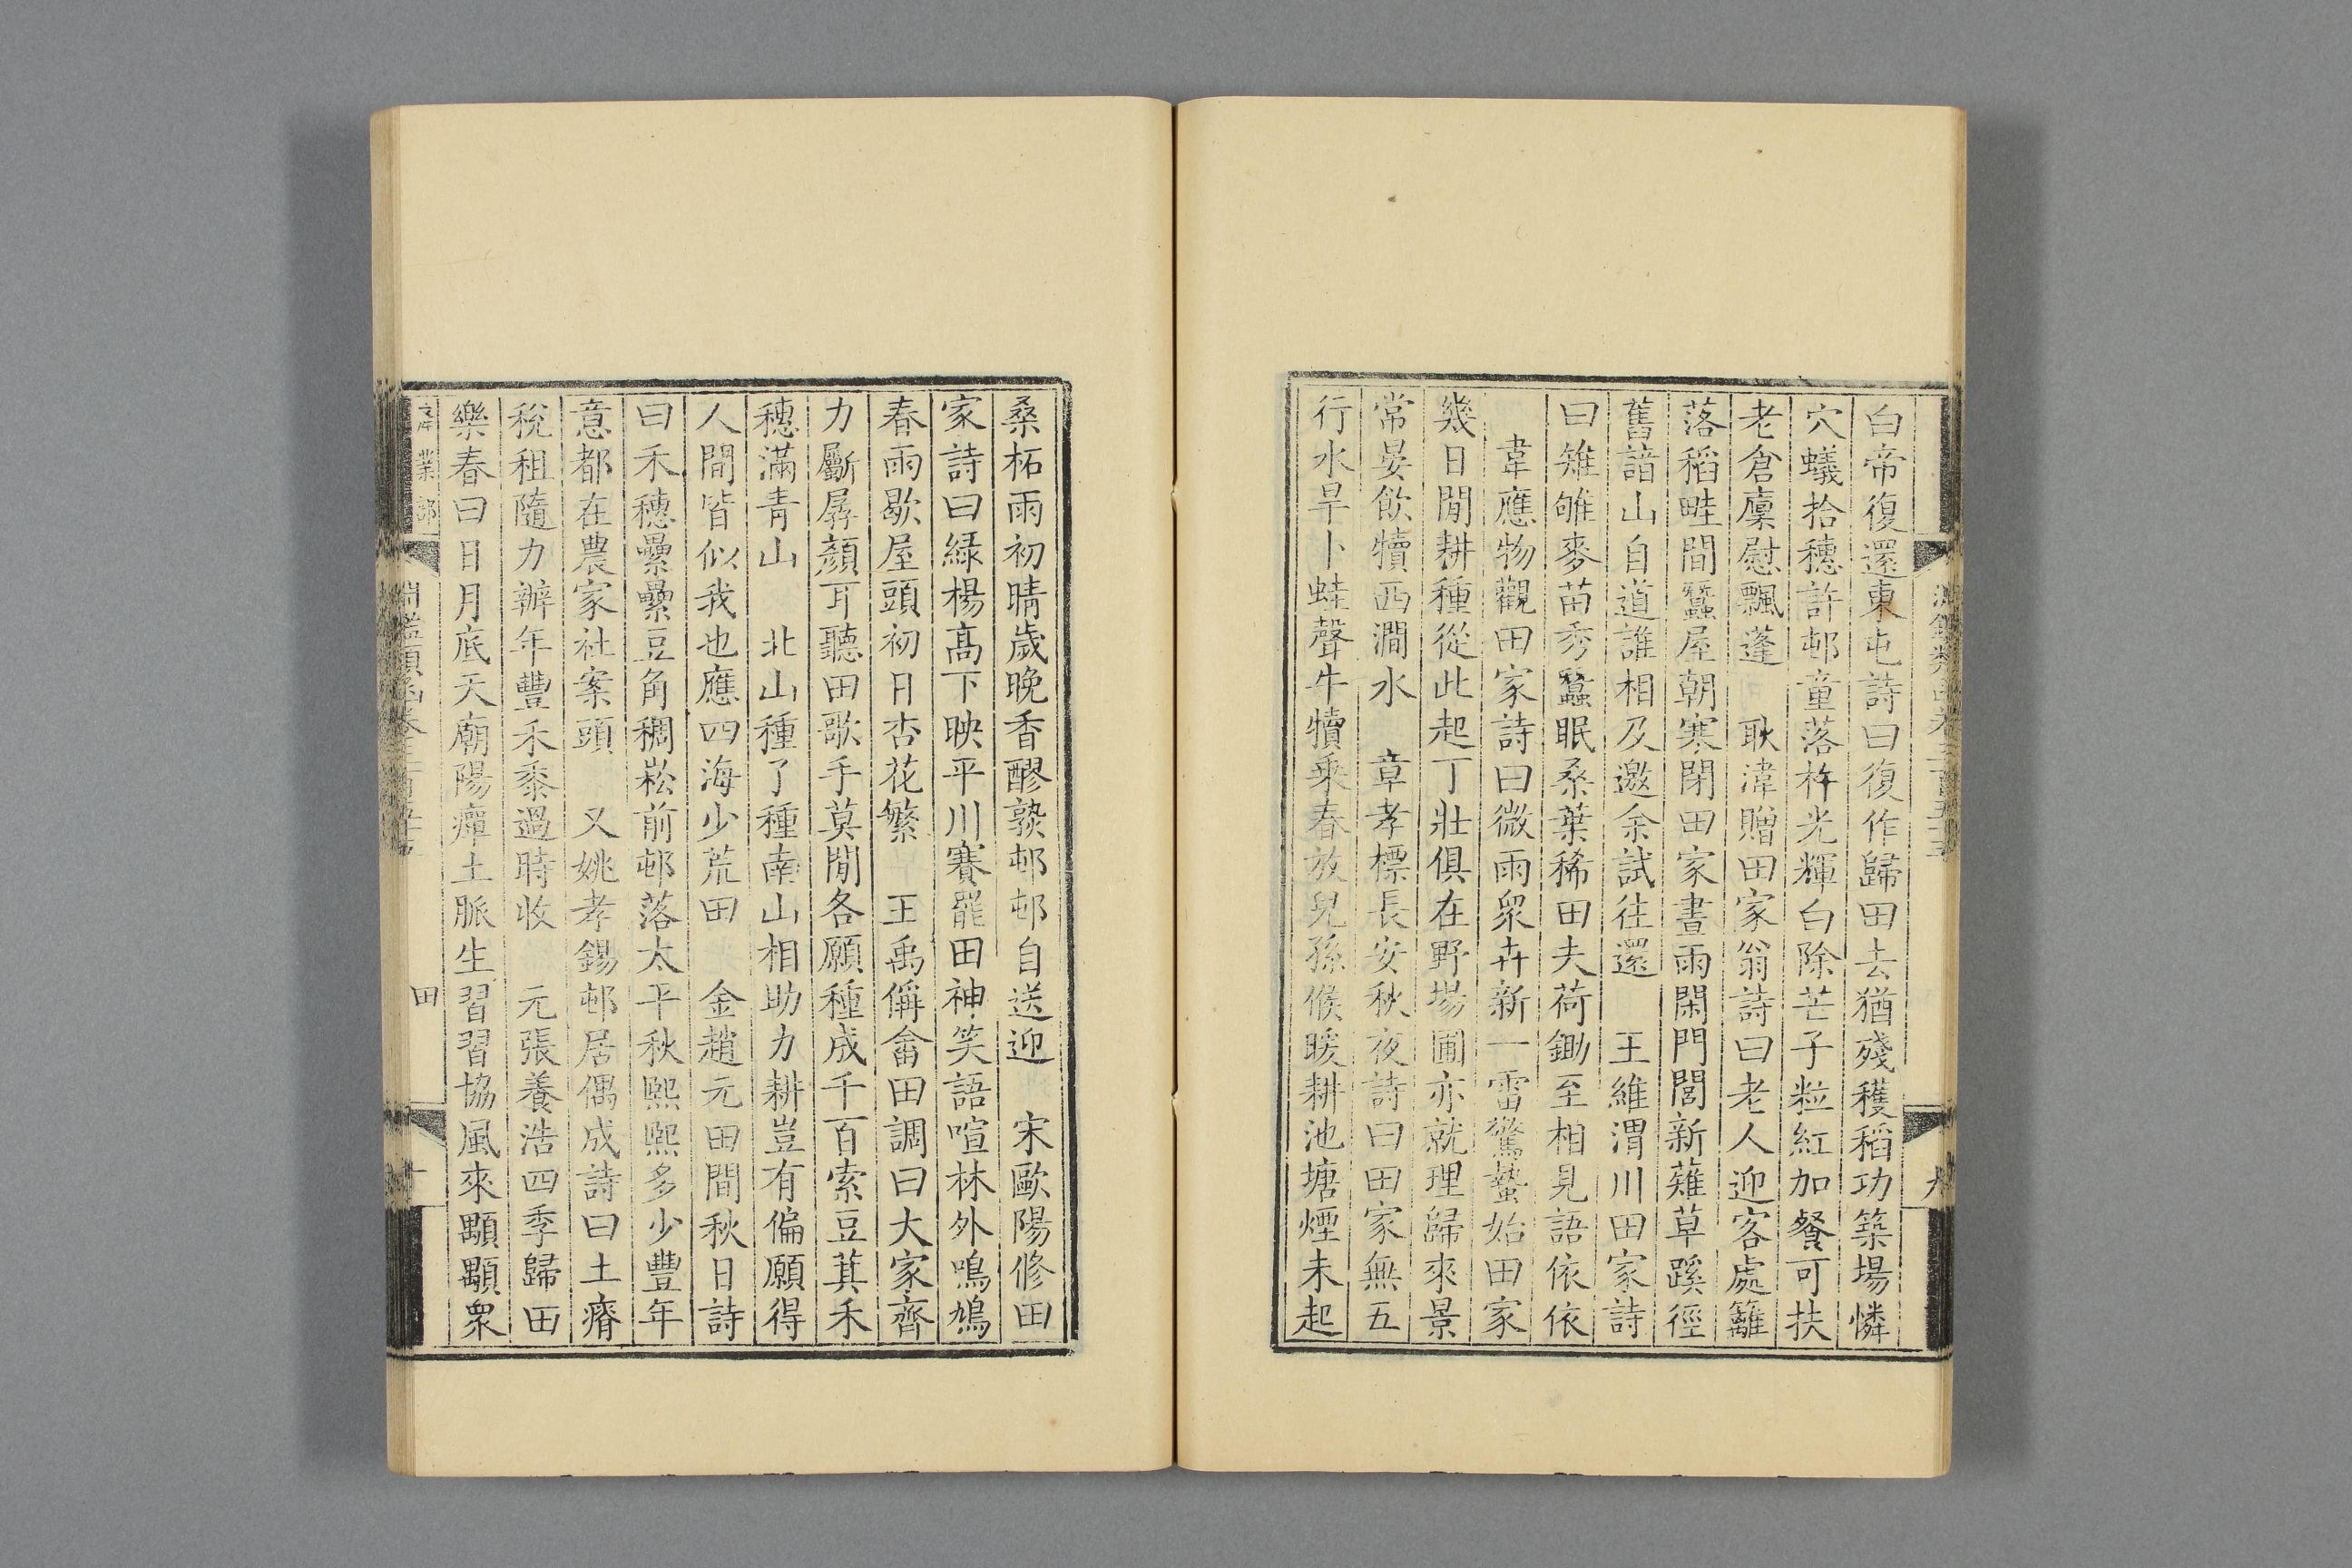 白帝復還東屯詩曰復作歸田去猶殘穫稻功築場憐
穴蟻拾穗許邨童落杵光輝白除芒子粒紅加餐可扶
老倉廩慰飄蓬 耿湋贈田家翁詩曰老人迎客處籬
落稻畦間蠶屋朝寒閉田家晝雨閑門閭新薙草蹊徑
舊諳山自道誰相及邀余試往還 王維渭川田家詩
曰雉雊麥苗秀蠶眠桑葉稀田夫荷鋤至相見語依依
韋應物觀田家詩曰微雨衆卉新一雷驚蟄始田家
幾日閒耕種從此起丁壯俱在野場圃亦就理歸來景
常晏飲犢西澗水 章孝標長安秋夜詩曰田家無五
行水旱卜蛙聲牛犢乘春放兒孫候暖耕池塘煙未起
桑柘雨初晴歲晚香醪熟邨邨自送迎 宋歐陽修田
家詩曰綠楊高下映平川賽罷田神笑語喧林外鳴鳩
春雨歇屋頭初日杏花繁 王禹偁畬田調曰大家齊
力斸孱顏耳聽田歌手莫閒各願種成千百索豆萁禾
穗滿青山 北山種了種南山相助力耕豈有偏願得
人間皆似我也應四海少荒田 金趙元田間秋日詩
曰禾穗纍纍豆角稠崧前邨落太平秋熙熙多少豐年
意都在農家社案頭 又姚孝錫邨居偶成詩曰土瘠
稅租隨力辦年豐禾黍過時收 元張養浩四季歸田
樂春曰日月底天廟陽癉土脈生習習協風來顒顒衆
產業部 淵鑑類函卷三百五十五 田 十